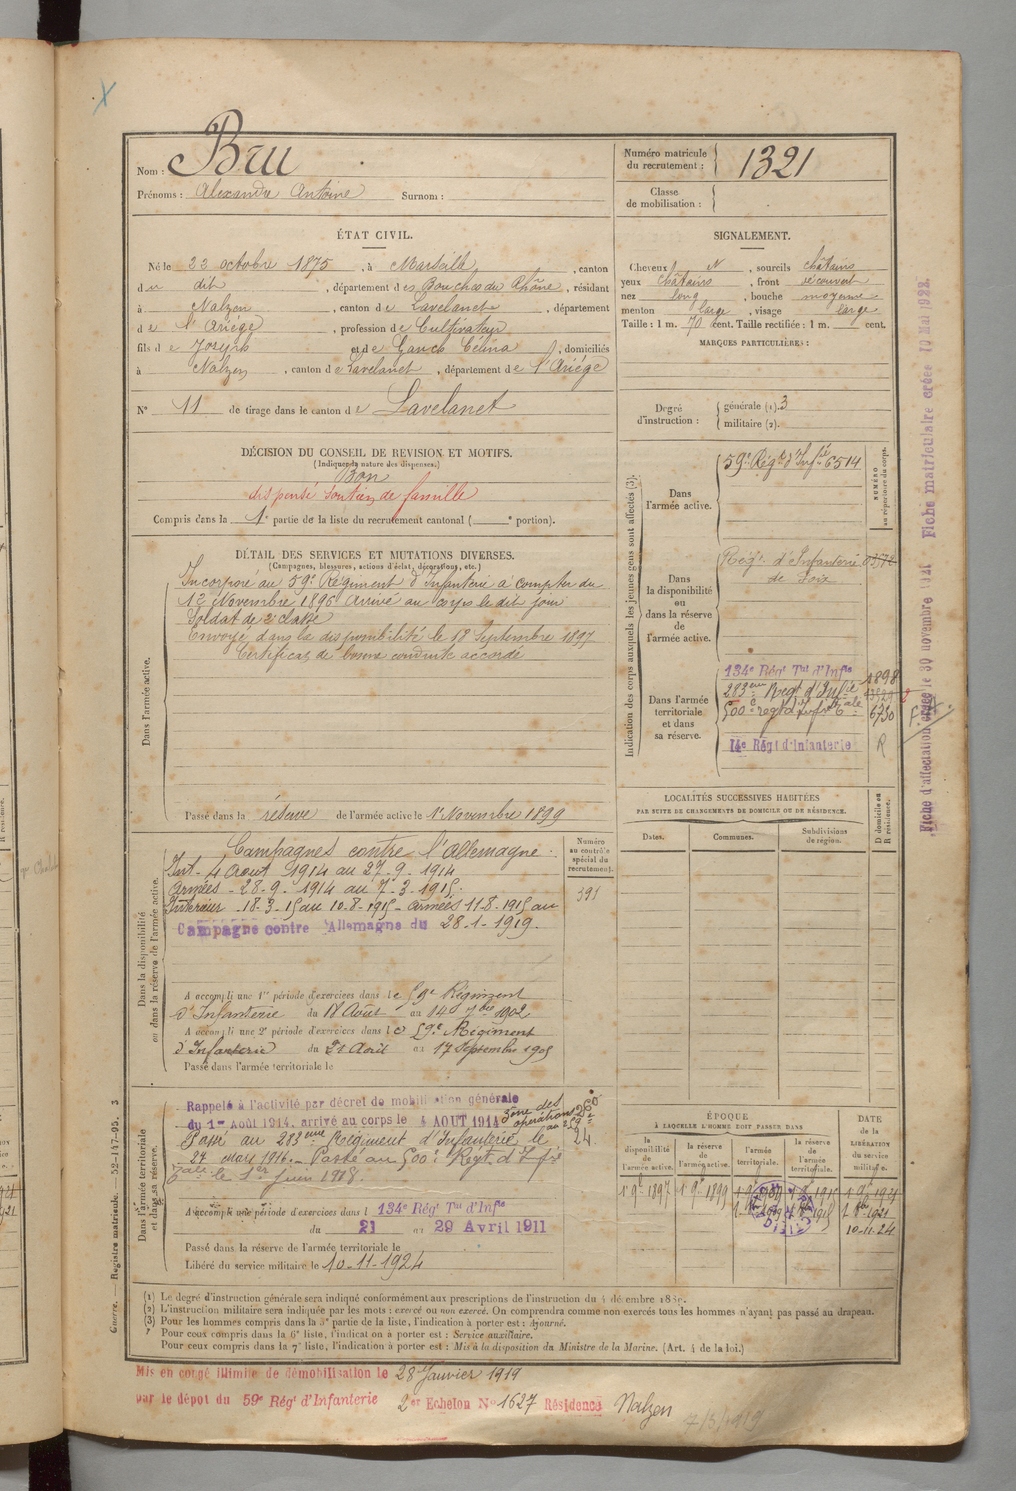 Nom : Bru
Prénoms : Alexandre Antoine Surnom :
Numéro matricule du recrutement : 1321
Classe de mobilisation :
ÉTAT CIVIL.
Né le 22 octobre 1875, à Marseille, canton
du dit, département des Bouches du Rhône, résidant
à Nalzen, canton de Lavelanet, département
de l'Ariége, profession de Cultivateur
fils de Joseph et de Célina, domiciliés
à Nalzen, canton de Lavelanet, département de l'Ariége
N° 11 de tirage dans le canton de Lavelanet
SIGNALEMENT.
Cheveux N, sourcils châtains
yeux châtains, front découvert
nez long, bouche moyenne
menton large, visage large
Taille : 1 m. 70 cent. Taille rectifiée : 1 m. cent.
MARQUES PARTICULIÈRES :
Degré d'instruction : générale (1). 3
militaire (2).
DÉCISION DU CONSEIL DE REVISION ET MOTIFS.
(Indiquer la nature des dispenses.)
Bon
dispensé soutien de famille
Compris dans la 1e partie de la liste du recrutement cantonal ( e portion).
DÉTAIL DES SERVICES ET MUTATIONS DIVERSES.
(Campagnes, blessures, actions d'éclat, décorations, etc.)
Dans l'armée active.
Incorporé au 59e Régiment d'Infanterie à compter du
12 Novembre 1896 Arrivé au corps le dit jour
Soldat de 2e classe
Envoyé dans la disponibilité le 18 Septembre 1897
Certificat de bonne conduite accordé
Passé dans la réserve de l'armée active le 1er Novembre 1899
Indication des corps auxquels les jeunes gens sont affectés (3).
NUMÉRO au répertoire du corps.
Dans l'armée active.
59e Régt d'Infie 6514
Dans la disponibilité ou dans la réserve de l'armée active.
Régt d'Infanterie
de Foix
Dans l'armée territoriale et dans sa réserve.
134e Régt Tal d'Infie 1898
283eme Regt d'Infie
500e regt d'Infie Tale 6730
14e Régt d'Infanterie R
LOCALITÉS SUCCESSIVES HABITÉES
PAR SUITE DE CHANGEMENTS DE DOMICILE OU DE RÉSIDENCE.
Dates. Communes. Subdivisions de région. D domicile ou R résidence.
Dans la disponibilité ou dans la réserve de l'armée active.
Numéro au contrôle spécial du recrutement.
391
Campagnes contre l'Allemagne.
Int. 4 Août 1914 au 27-9-1914
Armées - 28-9-1914 au 7-3-1915.
Intérieur - 18-3-15 au 10-8-1915 - armées 11-8-1915 au
Campagne contre l'Allemagne du 28-1-1919.
A accompli une 1re période d'exercices dans le 59e Régiment
d'Infanterie du 18 Août au 14 7bre 1902
A accompli une 2e période d'exercices dans le 59e Régiment
d'Infanterie du 21 Août au 17 Septembre 1905
Passé dans l'armée territoriale le
Dans l'armée territoriale et dans sa réserve.
Rappelé à l'activité par décret de mobilisation générale
du 1er Août 1914, arrivé au corps le 4 AOUT 1914
Passé au 283eme Régiment d'Infanterie le
27 Mars 1916. Passé au 500e Regt d'Infie
Tale le 1er juin 1918.
A accompli une période d'exercices dans l 134e Régt Tal d'Infie
du 21 au 29 Avril 1911
Passé dans la réserve de l'armée territoriale le
Libéré du service militaire le 10-11-1924
ÉPOQUE
À LAQUELLE L'HOMME DOIT PASSER DANS
la disponibilité de l'armée active. la réserve de l'armée active. l'armée territoriale. la réserve de l'armée territoriale.
DATE de la LIBÉRATION du service militaire.
1 9e 1897 1 9e 1899 1 9e 1909 1 9e 1915 1 9e 1921
10-11-24
(1) Le degré d'instruction générale sera indiqué conformément aux prescriptions de l'instruction du 4 décembre 1889.
(2) L'instruction militaire sera indiquée par les mots : exercé ou non exercé. On comprendra comme non exercés tous les hommes n'ayant pas passé au drapeau.
(3) Pour les hommes compris dans la 5e partie de la liste, l'indication à porter est : Ajourné.
Pour ceux compris dans la 6e liste, l'indication à porter est : Service auxiliaire.
Pour ceux compris dans la 7e liste, l'indication à porter est : Mis à la disposition du Ministre de la Marine. (Art. 4 de la loi.)
Mis en congé illimité de démobilisation le 28 Janvier 1919
par le dépôt du 59e Régt d'Infanterie 2er Echelon No 1627 Résidence Nalzen
7/3/1919
Guerre. — Registre matricule. — 52-147-95. 3
Fiche d'affectation créée le 30 novembre 1921 Fiche matriculaire créée 10 Mai 1922.